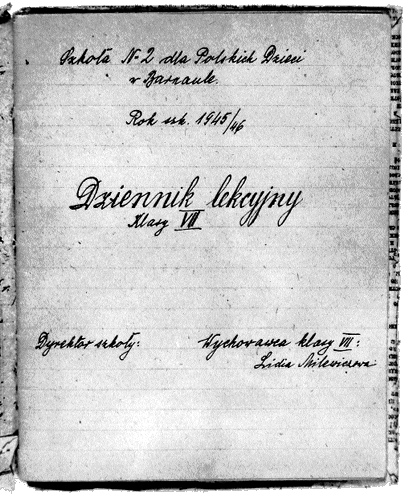 Szkoła № 2 dla Polskich Dzieci
w Barnaule.
Rok szk. 1945/46
Dziennik lekcyjny
Klasy VII
Dyrektor szkoły:
Wychowawca klasy VII:
Lidia Milewiczowa